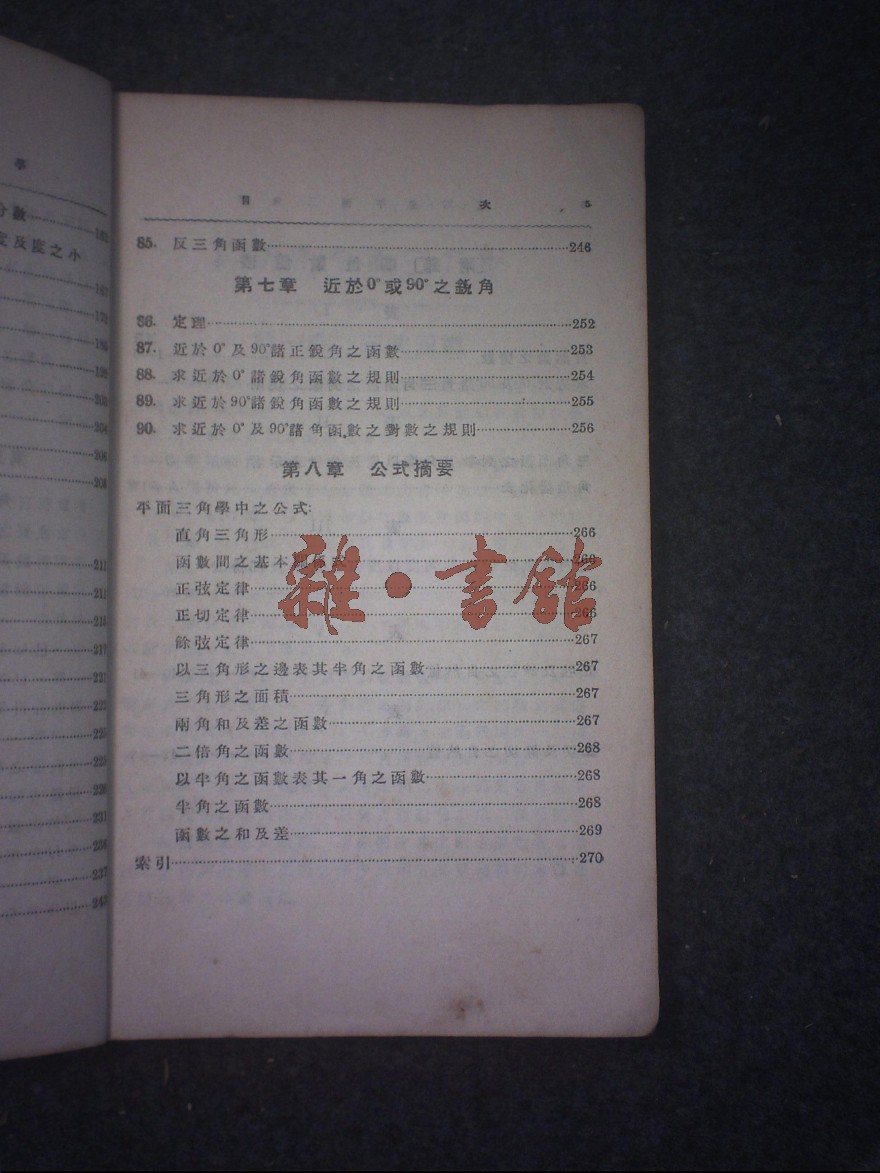 學
分數
度及度之小
211
217
221
237
目 次 5
85. 反三角函數 246
第七章 近於0°或90°之銳角
86. 定理 252
87. 近於0°及90°諸正銳角之函數 253
88. 求近於0°諸銳角函數之規則 254
89. 求近於90°諸銳角函數之規則 255
90. 求近於0°及90°諸角函數之對數之規則 256
第八章 公式摘要
平面三角學中之公式:
直角三角形 266
函數間之基本關係式 266
正弦定律 266
正切定律 266
餘弦定律 267
以三角形之邊表其半角之函數 267
三角形之面積 267
兩角和及差之函數 267
二倍角之函數 268
以半角之函數表其一角之函數 268
半角之函數 268
函數之和及差 269
索引 270
雜·書館